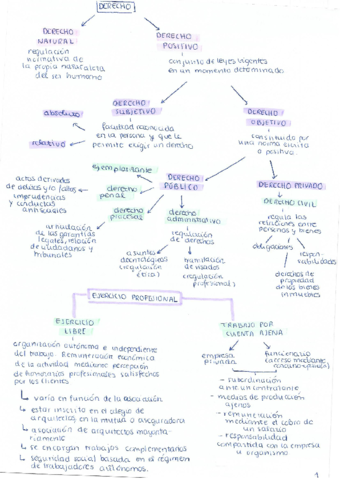 DERECHO
DERECHO
NATURAL
regulación
normativa de
la propia naturaleza
del ser humano
DERECHO
POSITIVO
conjunto de leyes vigentes
en un momento determinado
DERECHO
SUBJETIVO
absoluto
relativo
facultad reconocida
en la persona y que le
permite exigir un derecho
DERECHO
OBJETIVO
constituido por
una norma escrita
o positiva.
ejemplarizante
DERECHO
PÚBLICO
derecho
penal
actos derivados
imprudencias
y conductas
antilegales
derecho
procesal
de las garantías
legales, relación
de ciudadanos y
tribunales
derecho
administrativo
regulación
de derechos
asuntos
deontológicos
(regulación
ética)
tramitación
de visados
(regulación
profesional)
DERECHO PRIVADO
DERECHO CIVIL
regula las
relaciones entre
personas y bienes
obligaciones
respon-
sabilidades
derechos de
propiedad
de los bienes
inmuebles
EJERCICIO PROFESIONAL
EJERCICIO
LIBRE
organización autónoma e independiente
del trabajo. Remuneración económica
de la actividad mediante percepción
de honorarios profesionales satisfechos
por los clientes
varía en función de la
estar inscrito en el colegio de
arquitectos, en la mutua o aseguradora
asociación de arquitectos mayorita-
riamente
se encargan trabajos complementarios
seguridad social basada en el régimen
de trabajadores autónomos.
TRABAJO POR
CUENTA AJENA
empresa
privada
funcionario
(acceso mediante
concurso-oposición)
- subordinación
ante un contratante
- medios de producción
ajenos
- remuneración
mediante el cobro de
un salario
- responsabilidad
compartida con la empresa
u organismo
1